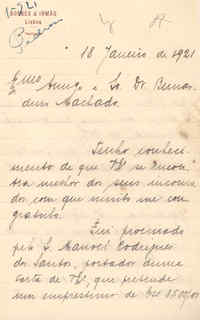 BORGES & IRMÃO
Lisboa
18 Janeiro de 1921
Exmo Amigo e Sr. Dr. Bernar-
dino Machado
Tenho conheci-
mento de que V.E. se encon-
tra melhor dos seus incomo-
dos com que muito me con-
gratulo.
Fui procurado
pelo S. Manoel Rodrigues
dos Santos, portador duma
carta de V.E., que pretende
um emprestimo de